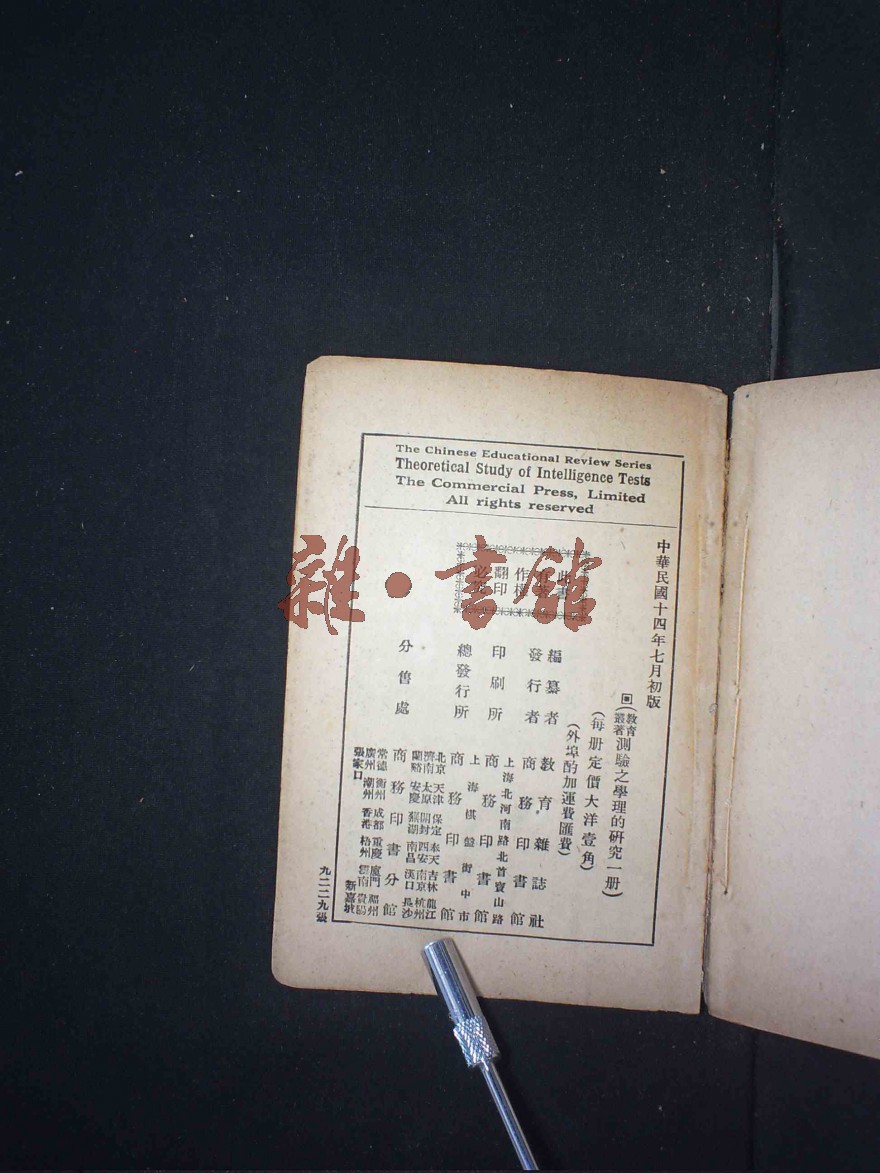 The Chinese Educational Review Series
Theoretical Study of Intelligence Tests
The Commercial Press, Limited
All rights reserved
中華民國十四年七月初版
(教育叢著測驗之學理的研究一册)
(每册定價大洋壹角)
(外埠酌加運費匯費)
此書有著
作權
翻印
必究
編纂者 教育雜誌社
發行者 商務印書館
上海北河南路北首寶山路
印刷所 商務印書館
上海棋盤街中市
總發行所 商務印書館
分售處 商務印書分館
北京 天津 保定 奉天 吉林 龍江
濟南 太原 開封 西安 南京 杭州
蘭谿 安慶 蕪湖 南昌 漢口 長沙
常德 衡州 成都 重慶 廈門 福州
廣州 潮州 香港 梧州 雲南 貴陽
張家口 新嘉坡
九二二九張
雜·書館